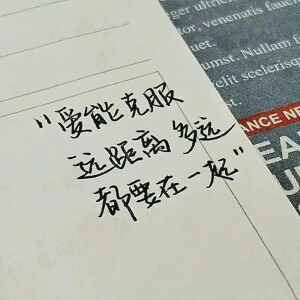 "爱能克服
远距离多远
都要在一起"
ger ultric
or, venenatis fauc
uet.
umst. Nullam f
velit scelerisq
ANCE NE
EA